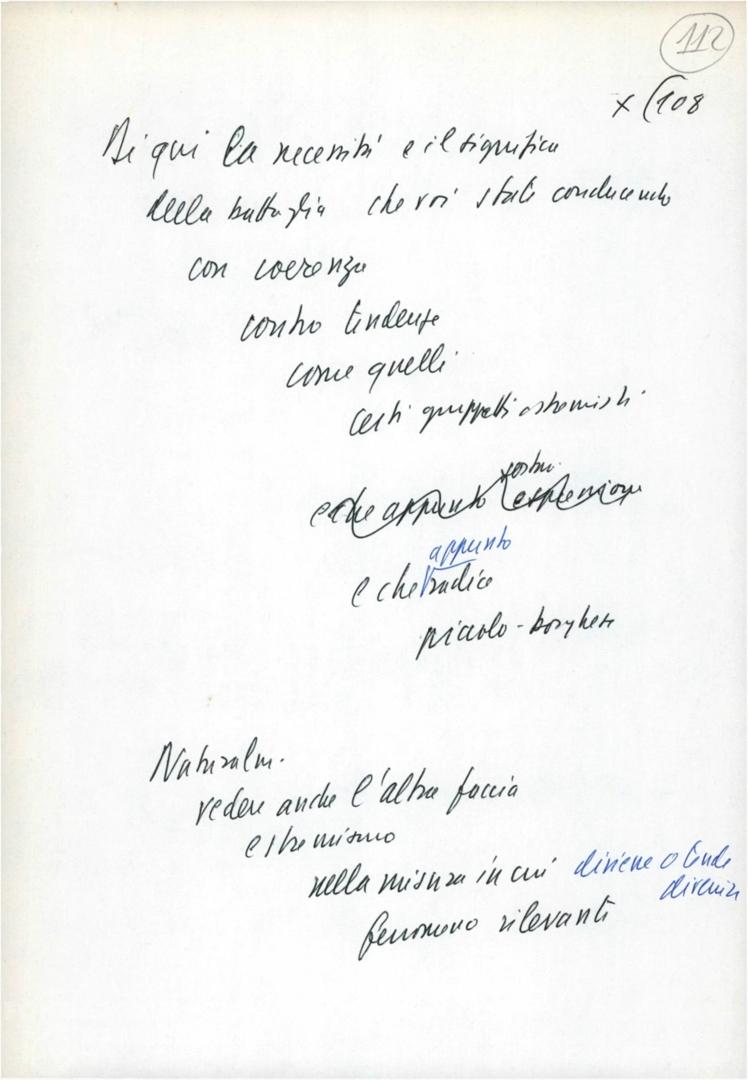 112
x (108
Di qui la necessità e il significa
della battaglia che voi state conducendo
con coerenza
contro tendenze
come quelli
certi gruppetti estremisti.
e che appunto espressione
appunto
e che radice
piccolo-borghese
Naturalm.
vedere anche l'altra faccia
estremismo
nella misura in cui diviene o tende
divenire
fenomeno rilevanti